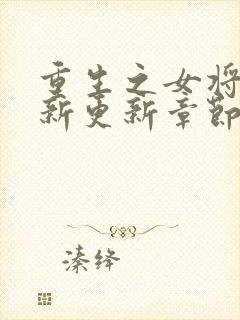 重生之女将
新更新章節
溱绛